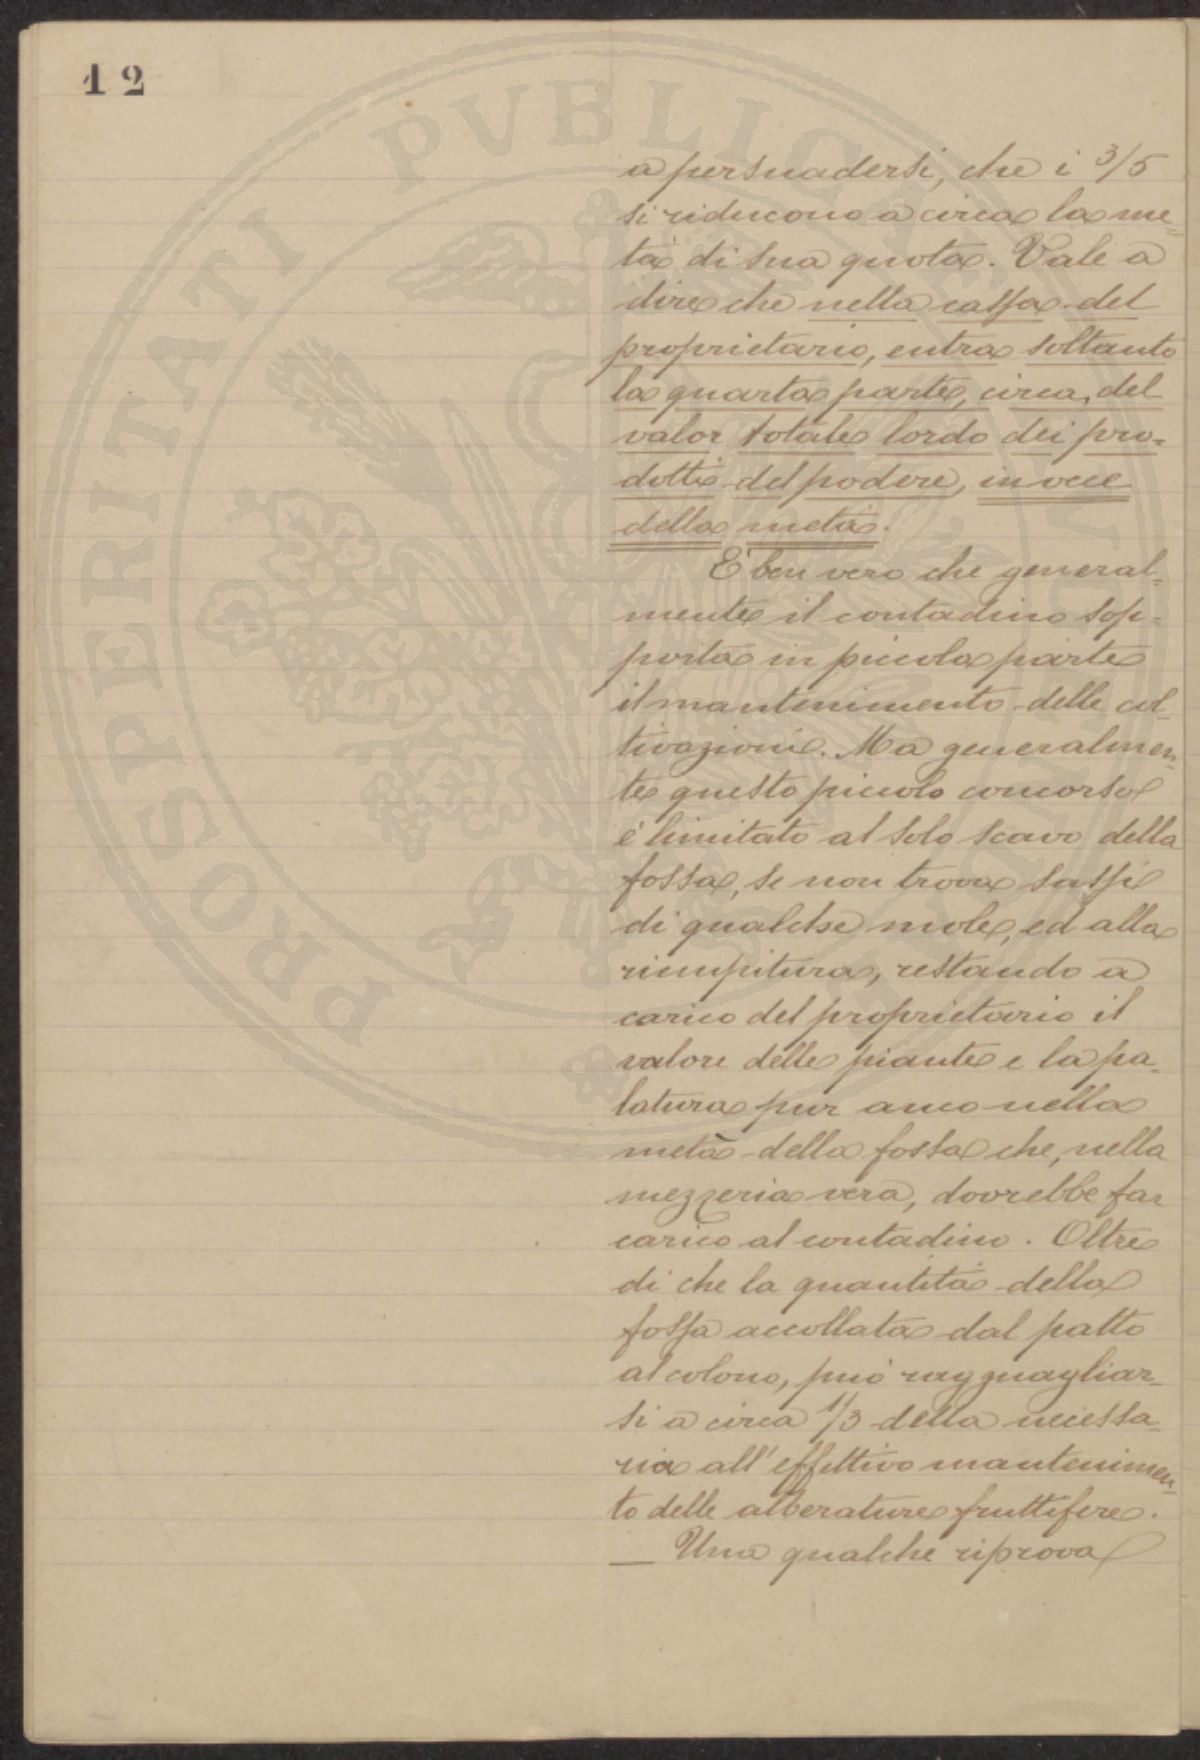 12
PROSPERITATI PUBLICAE
a persuadersi, che i 3/5
si riducono a circa la me=
tà di sua quota. Vale a
dire che nella cassa del
proprietario, entra soltanto
la quarta parte, circa, del
valor totale lordo dei pro=
dotti del podere, in vece
della metà.
E' ben vero che general=
mente il contadino sop=
porta in piccola parte
il mantenimento delle col=
tivazioni. Ma generalmen=
te questo piccolo concorso
è limitato al solo scavo della
fossa, se non trova sassi
di qualche mole, ed alla
riempitura, restando a
carico del proprietario il
valore delle piante e la pa=
latura pur anco nella
metà della fossa che, nella
mezzeria vera, dovrebbe far
carico al contadino. Oltre
di che la quantità della
fossa accollata dal patto
al colono, può ragguagliar=
si a circa 1/3 della necessa=
ria all'effettivo mantenimen=
to delle alberature fruttifere.
— Una qualche riprova